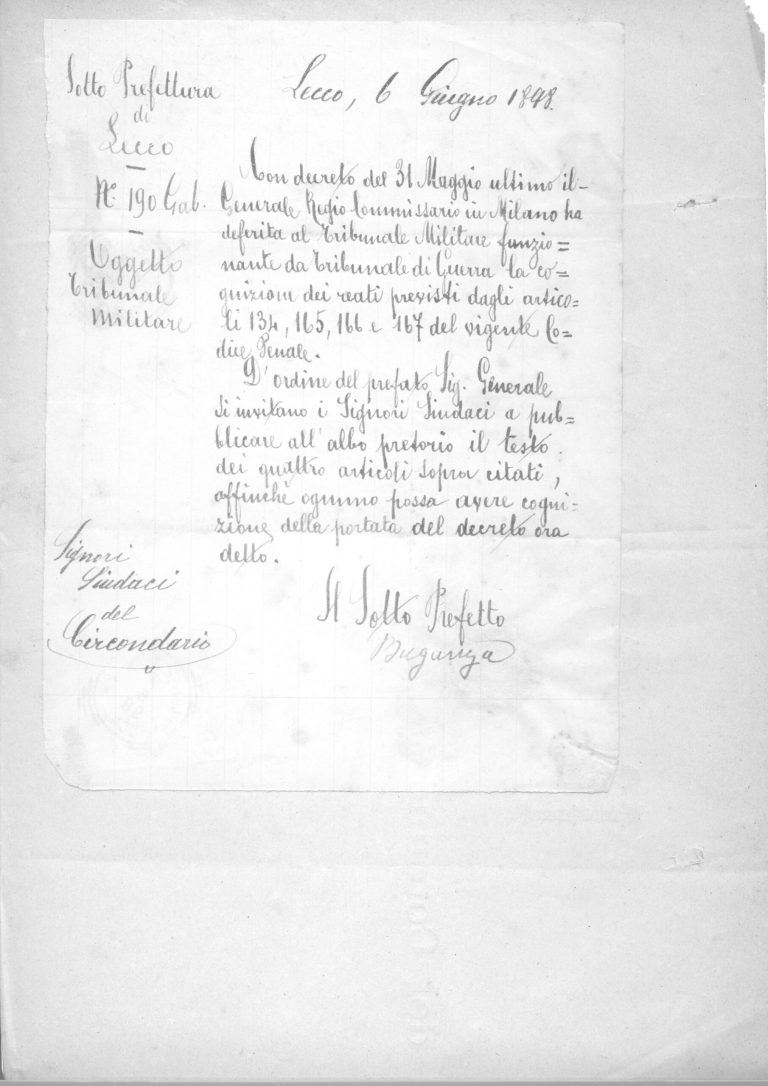 Sotto Prefettura
di
Lecco
N.° 190 Gab.
Oggetto
Tribunale
Militare
Lecco, 6 Giugno 1898.
Con decreto del 31 Maggio ultimo il
Generale Regio Commissario in Milano ha
deferita al Tribunale Militare funzio=
nante da Tribunale di Guerra la co=
gnizione dei reati previsti dagli artico=
li 134, 165, 166 e 167 del vigente Co=
dice Penale.
D'ordine del prefato Sig. Generale
si invitano i Signori Sindaci a pub=
blicare all'albo pretorio il testo
dei quattro articoli sopra citati,
affinchè ognuno possa avere cogni=
zione della portata del decreto ora
detto.
Signori
Sindaci
del
Circondario
Il Sotto Prefetto